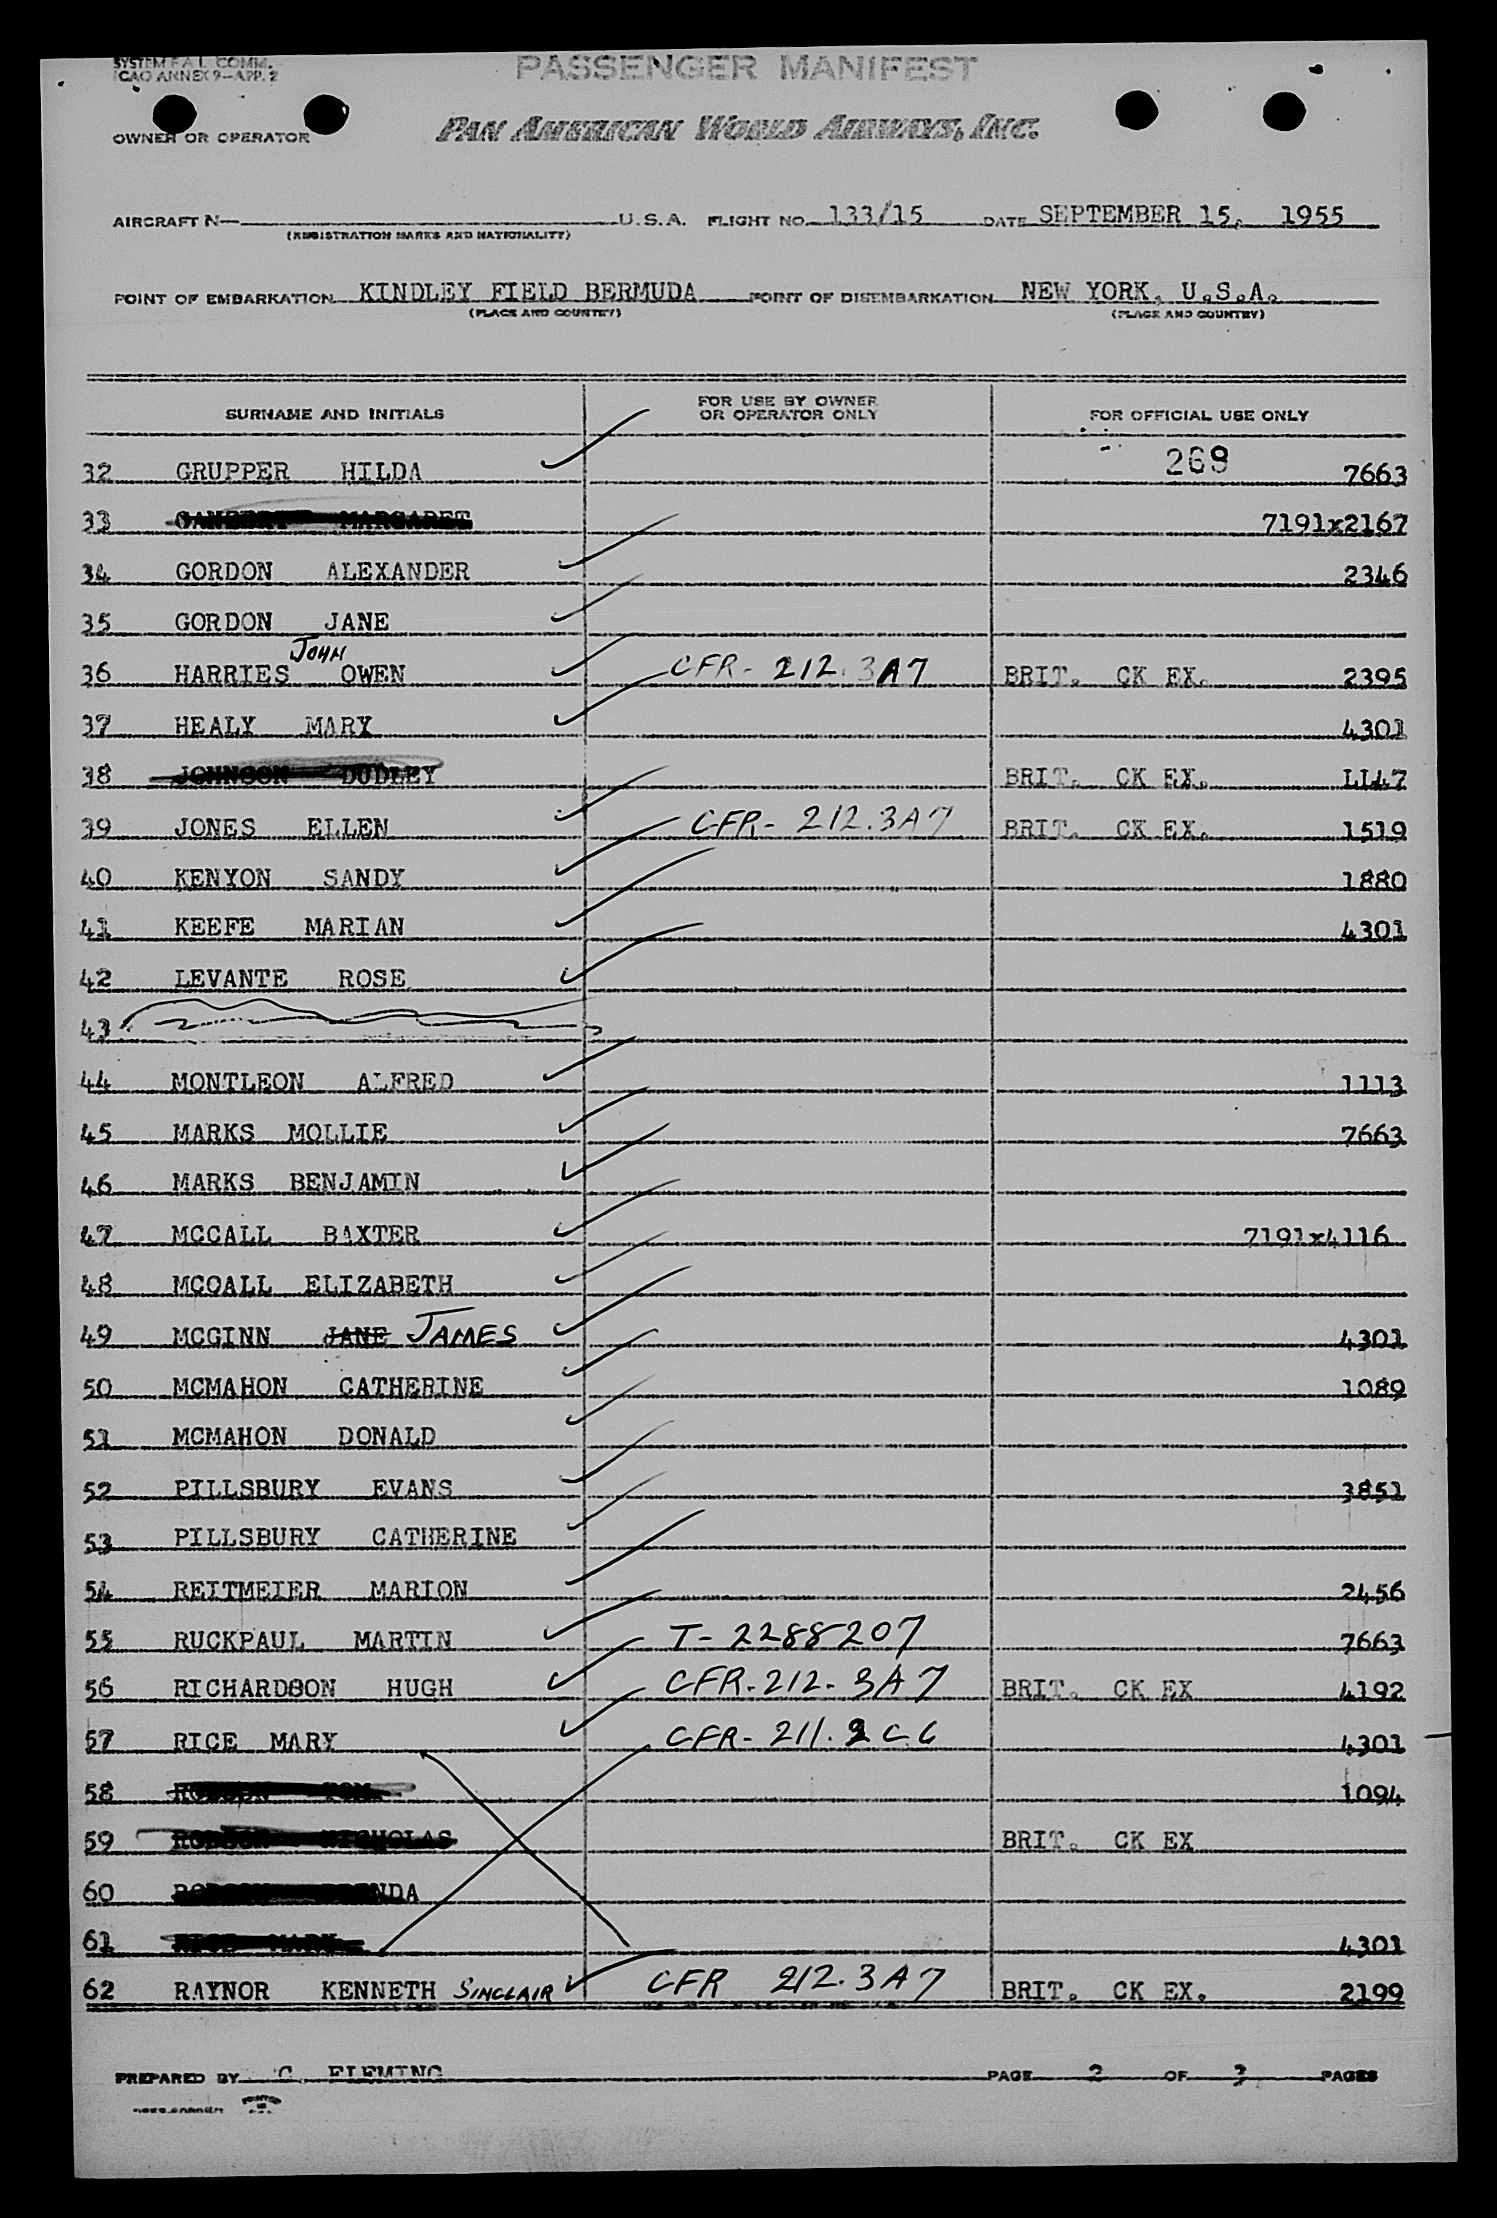 SYSTEM F.A.L. COMM.
ICAO ANNEX 9-APP. 2
PASSENGER MANIFEST
OWNER OR OPERATOR PAN AMERICAN WORLD AIRWAYS, INC.
AIRCRAFT N- U.S.A. FLIGHT NO. 133/15 DATE SEPTEMBER 15, 1955
(REGISTRATION MARKS AND NATIONALITY)
POINT OF EMBARKATION KINDLEY FIELD BERMUDA POINT OF DISEMBARKATION NEW YORK, U.S.A.
(PLACE AND COUNTRY) (PLACE AND COUNTRY)
SURNAME AND INITIALS FOR USE BY OWNER OR OPERATOR ONLY FOR OFFICIAL USE ONLY
32 GRUPPER HILDA 269 7663
33 MARGARET 7191x2167
34 GORDON ALEXANDER 2346
35 GORDON JANE
36 HARRIES JOHN OWEN CFR- 212.3A7 BRIT. CK EX. 2395
37 HEALY MARY 4301
38 JOHNSON DUDLEY BRIT. CK EX. LL47
39 JONES ELLEN CFR- 212.3A7 BRIT. CK EX. 1519
40 KENYON SANDY 1880
41 KEEFE MARIAN 4301
42 LEVANTE ROSE
43
44 MONTLEON ALFRED 1113
45 MARKS MOLLIE 7663
46 MARKS BENJAMIN
47 MCCALL BAXTER 7191x4116
48 MCCALL ELIZABETH
49 MCGINN JANE JAMES 4301
50 MCMAHON CATHERINE 1089
51 MCMAHON DONALD
52 PILLSBURY EVANS 3851
53 PILLSBURY CATHERINE
54 REITMEIER MARION 2456
55 RUCKPAUL MARTIN T- 2288207 7663
56 RICHARDSON HUGH CFR-212-3A7 BRIT. CK EX 4192
57 RICE MARY CFR- 211.2C6 4301
58 TOM 1094
59 NICHOLAS BRIT. CK EX
60
61 RICE MARY 4301
62 RAYNOR KENNETH SINCLAIR CFR 212.3A7 BRIT. CK EX. 2199
PREPARED BY C. FLEMING PAGE 2 OF 3 PAGES